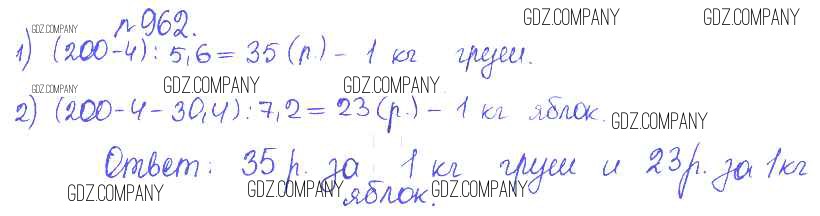 № 962.
GDZ.COMPANY GDZ.COMPANY
GDZ.COMPANY
1) (200-4) : 5,6 = 35 (р.) - 1 кг груш.
GDZ.COMPANY GDZ.COMPANY GDZ.COMPANY
2) (200-4-30,4) : 7,2 = 23 (р.) - 1 кг яблок.
GDZ.COMPANY
Ответ: 35 р. за 1 кг груш и 23 р. за 1 кг
GDZ.COMPANY GDZ.COMPANY яблок. GDZ.COMPANY